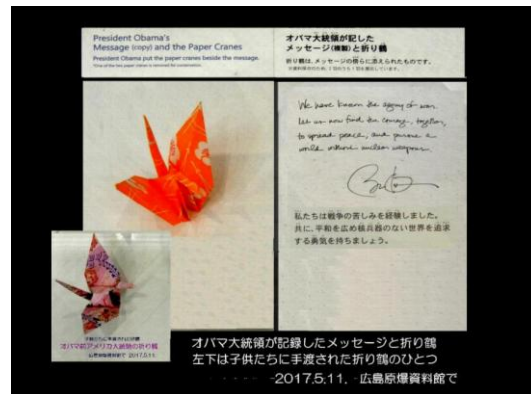 President Obama's
Message (copy) and the Paper Cranes
President Obama put the paper cranes beside the message.
オバマ大統領が記した
メッセージ(複製)と折り鶴
折り鶴は、メッセージの傍らに添えられたものです。
We have known the agony of war.
Let us now find the courage, together,
to spread peace, and pursue a
world without nuclear weapons.
私たちは戦争の苦しみを経験しました。
共に、平和を広め核兵器のない世界を追求
する勇気を持ちましょう。
オバマ前アメリカ大統領の折り鶴
広島原爆資料館で 2017.5.11.
オバマ大統領が記録したメッセージと折り鶴
左下は子供たちに手渡された折り鶴のひとつ
-2017.5.11. 広島原爆資料館で